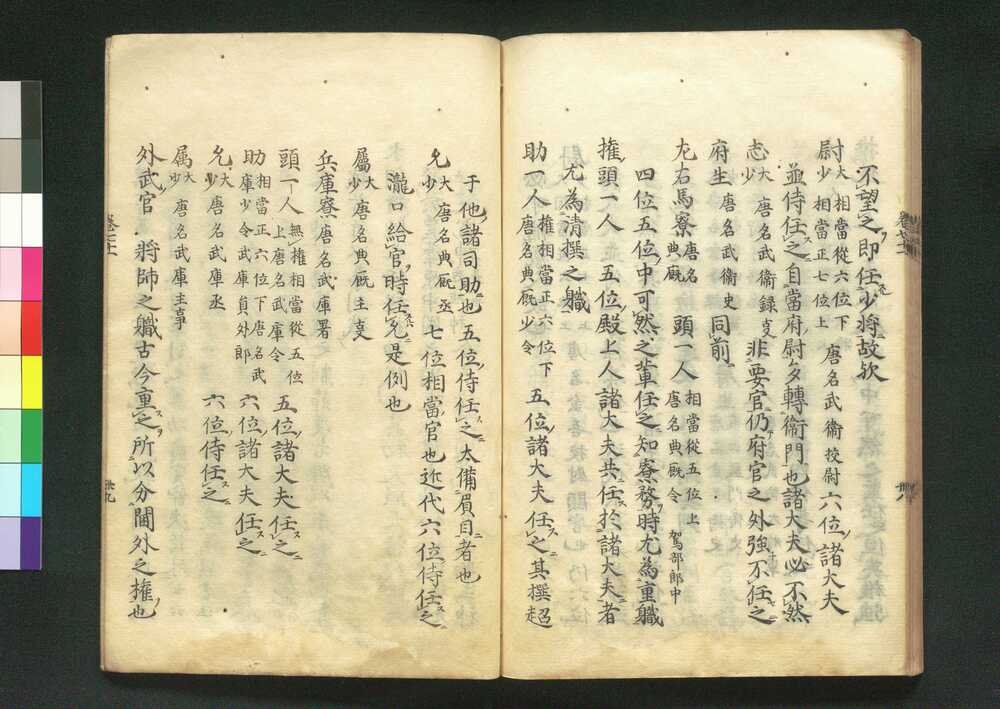 不望之即任少将故欤
尉大少 相當從六位下 相當正七位上 唐名武衛挍尉 六位諸大夫
並侍任之自當府尉多轉衛門也諸大夫必不然
志大少 唐名武衛録亊 非要官仍府官之外強不任之
府生 唐名武衛史 同前
左右馬寮 唐名典厩 頭一人 相當從五位上 唐名典厩令 駕部郎中
四位五位中可然之輩任之知寮務時尤為重職
権頭一人 並五位殿上人諸大夫共任於諸大夫者
尤為清撰之職
助一人 権相當正六位下 唐名典厩少令 五位諸大夫任之其撰超
于他諸司助也五位侍任之太備員目者也
允大少 唐名典厩丞 七位相當官也近代六位侍任之
瀧口給官時任允是例也
屬大少 唐名典厩主亊
兵庫寮 唐名武庫署
頭一人 無權相當從五位上唐名武庫令 五位諸大夫任之
助 相當正六位下唐名武庫少令武庫員外郎 六位諸大夫任之
允大少 唐名武庫丞 六位侍任之
属大少 唐名武庫主事
外武官 将師之職古今重之所以分閫外之権也
卅八
卅九